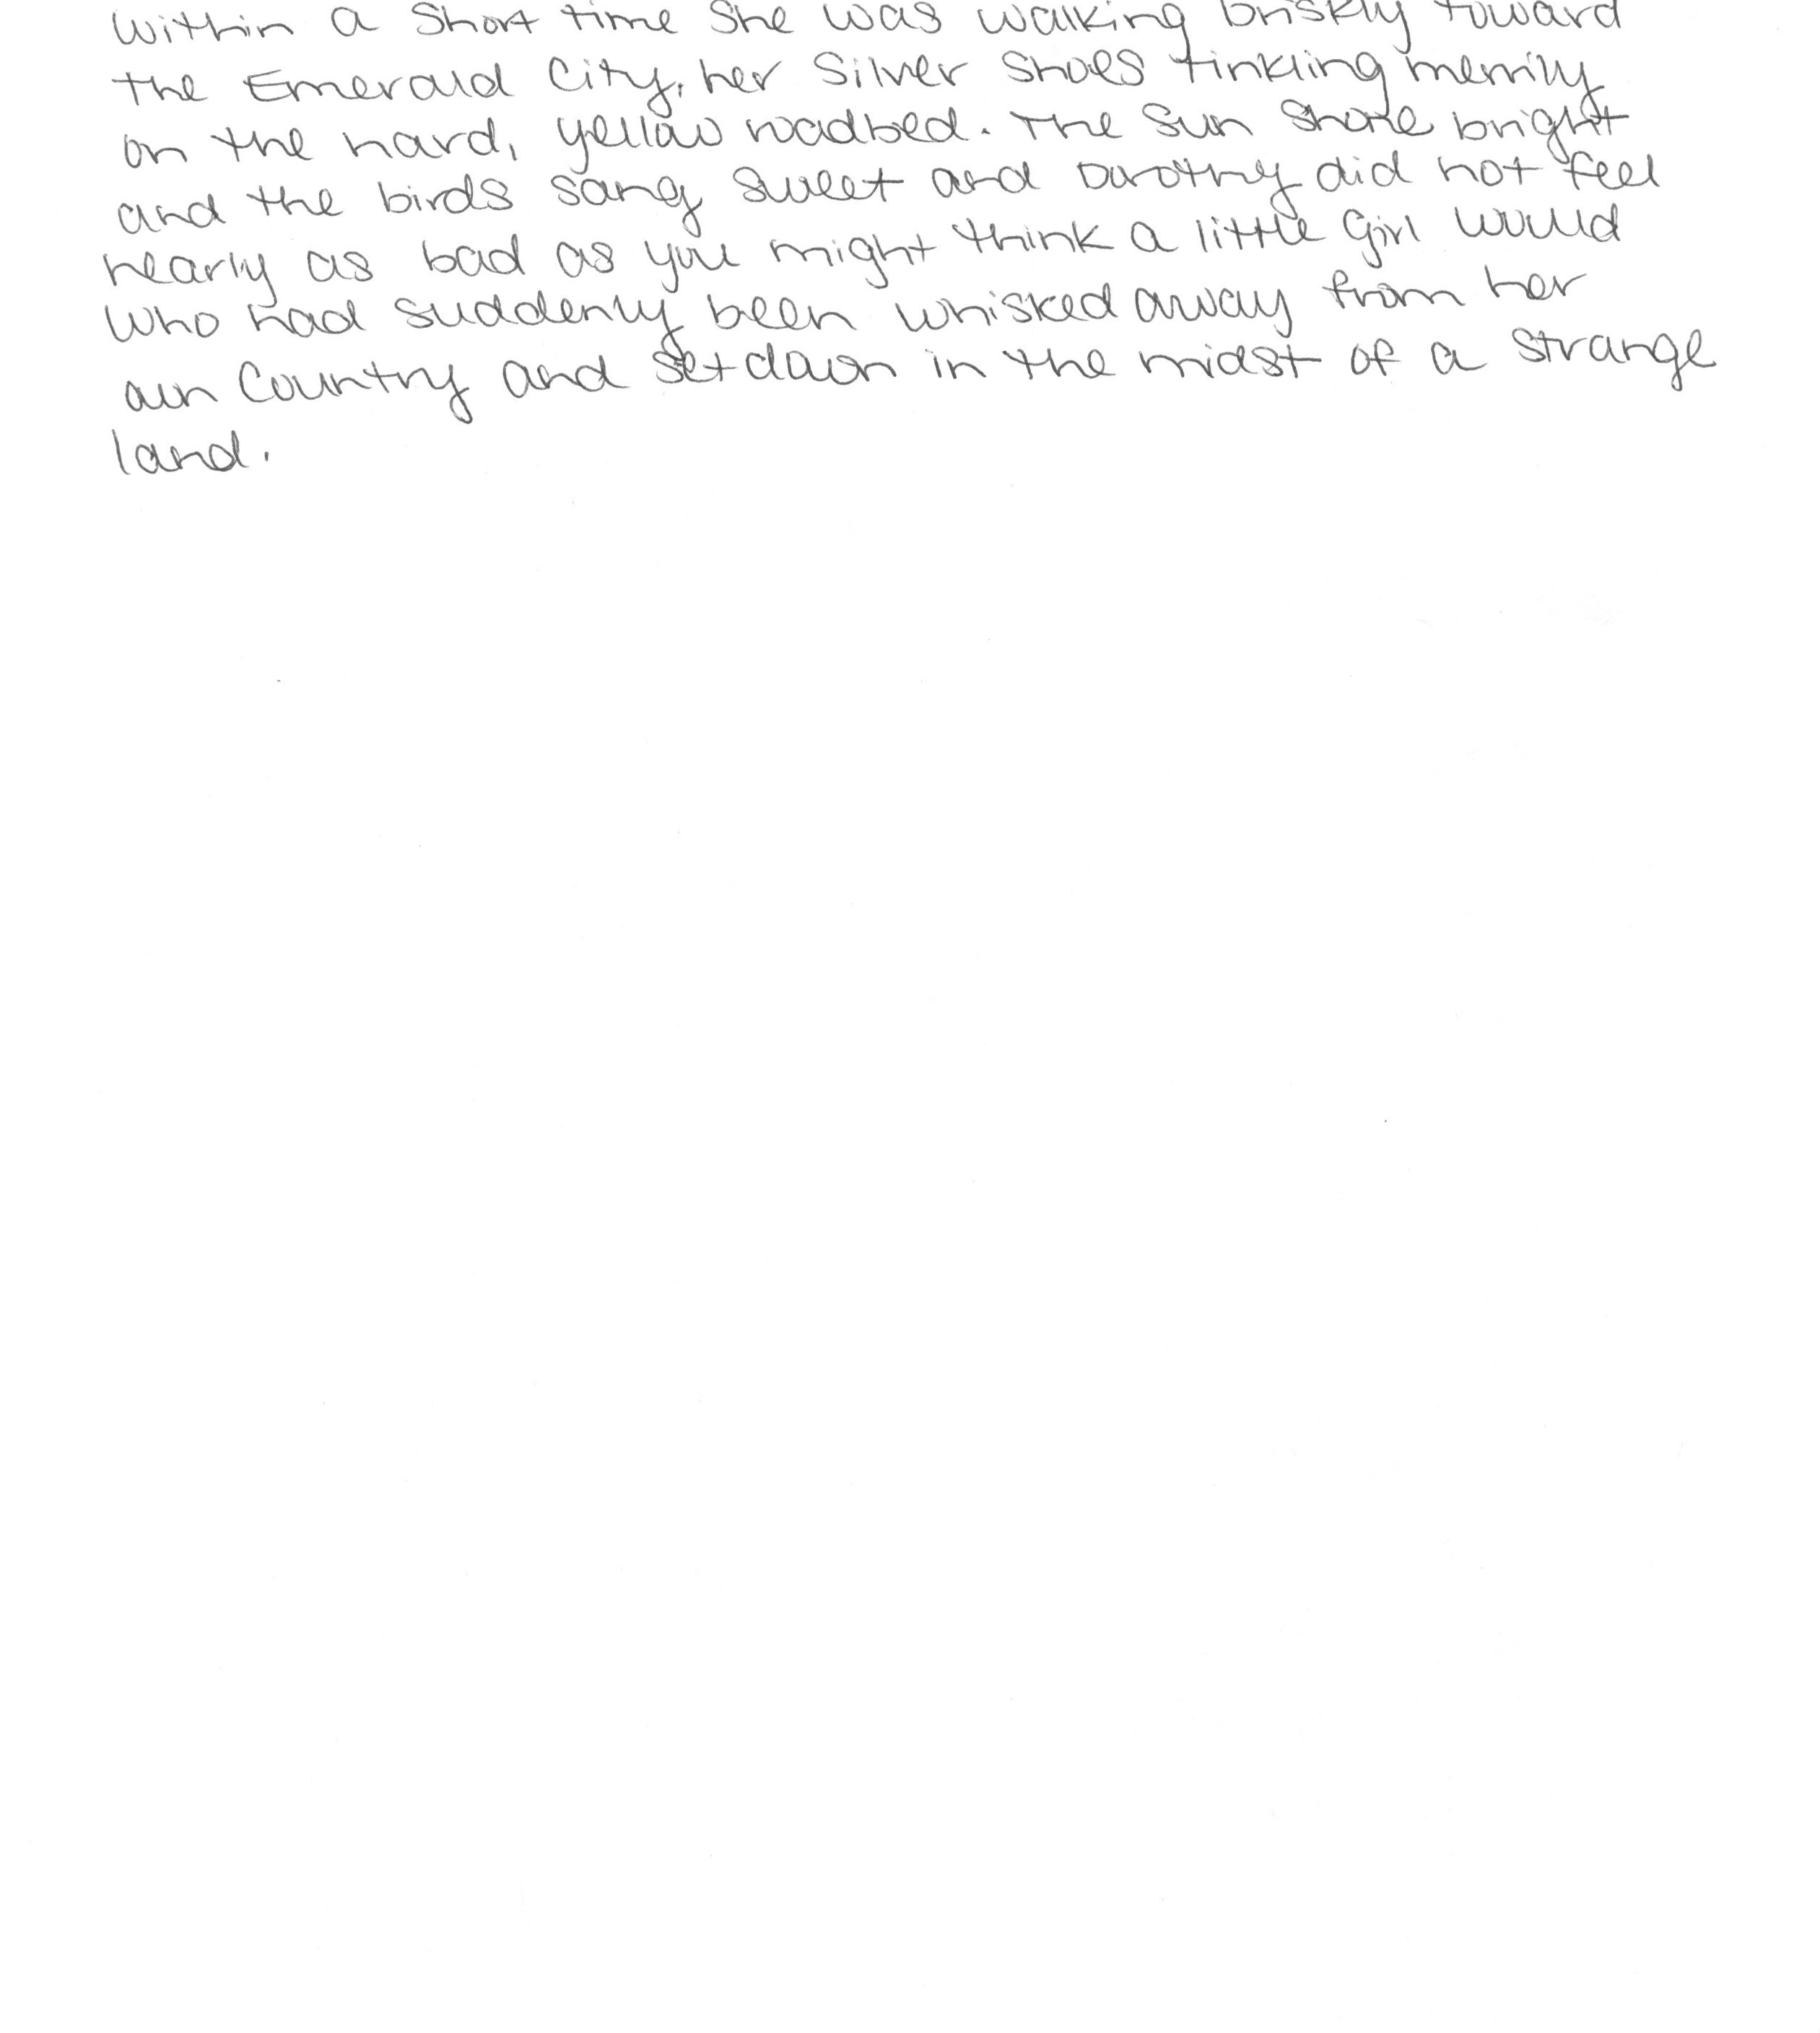 Within a short time she was walking briskly toward
the Emerald City, her Silver Shoes tinkling merrily
on the hard, yellow roadbed. The sun shone bright
and the birds sang sweet and Dorothy did not feel
nearly as bad as you might think a little girl would
who had suddenly been whisked away from her
own country and set down in the midst of a strange
land.